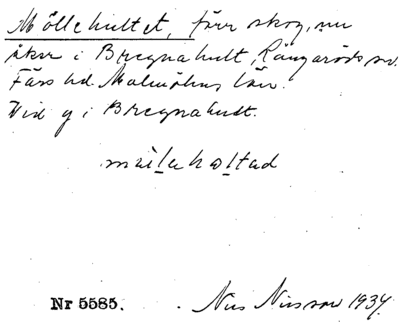 Möllehultet, förr skog, nu
åker i Bregnahult, Röddinge sn.
Färs hd. Malmöhus län.
Vid g i Bregnahult.
Nr 5585. Nils Nilsson 1934.